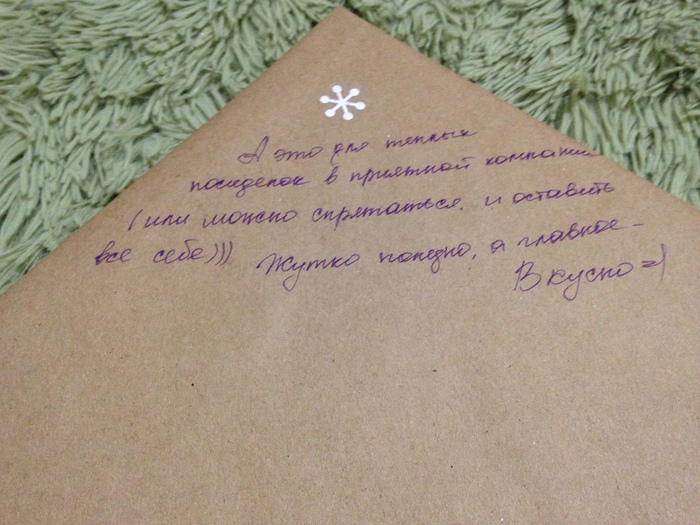 А это для теплых
посиделок в приятной компании
(или можно спрятаться и оставить
все себе))) Жутко полезно, а главное -
Вкусно =)